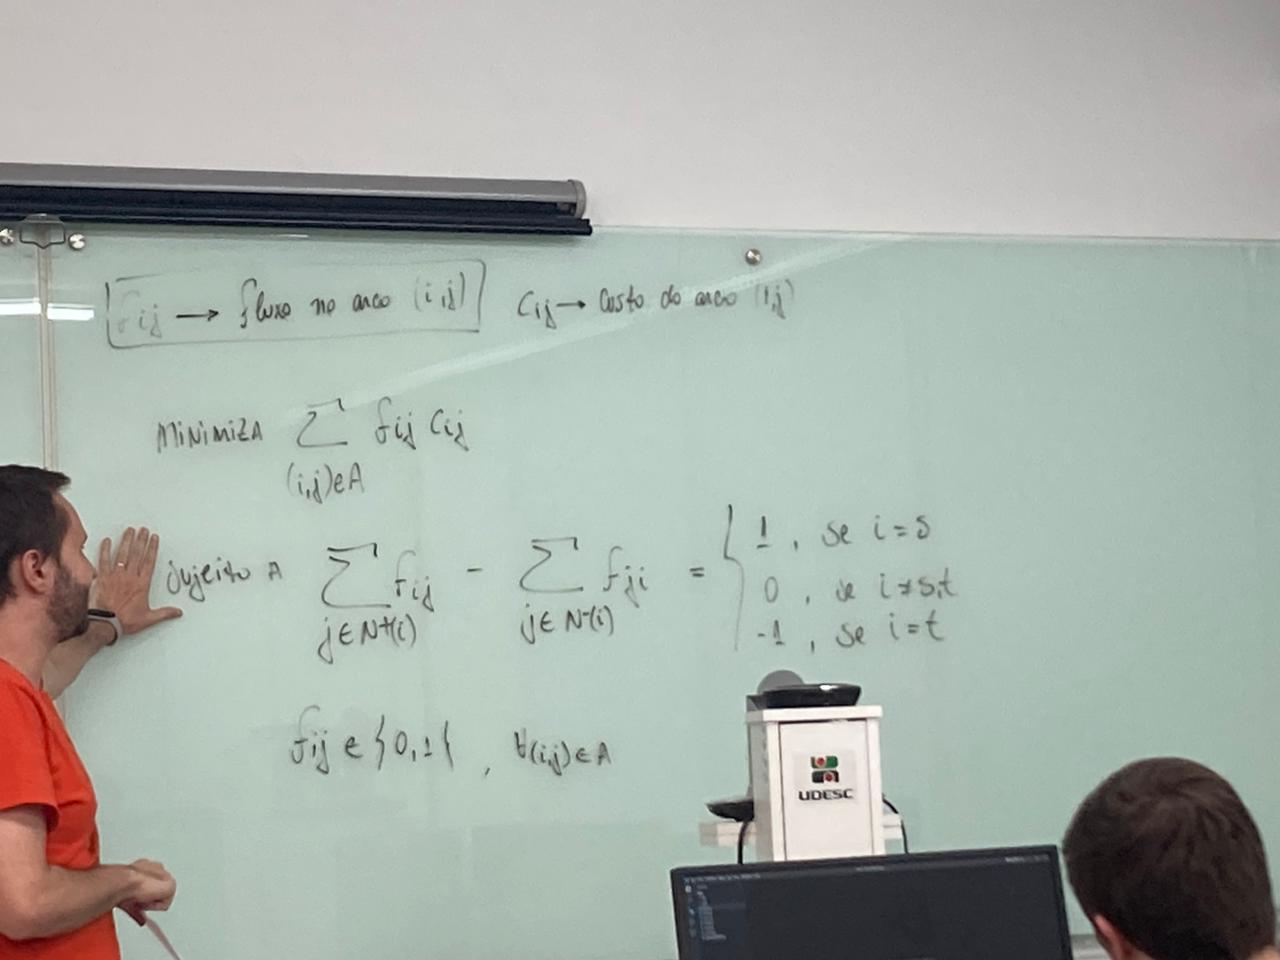 fij → fluxo no arco (i,j)   Cij → Custo do arco (i,j)
MINIMIZA ∑ fij Cij
(i,j)∈A
Sujeito A ∑ fij - ∑ fji = { 1, se i=s
0, se i≠s,t
j∈N+(i) j∈N-(i) -1, se i=t
fij ∈ {0,1}, ∀(i,j)∈A
UDESC